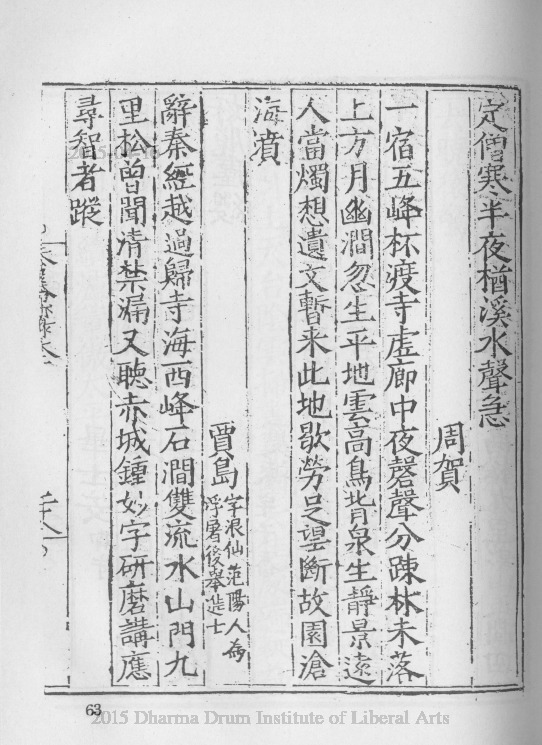 定僧寒半夜楢溪水聲急
周賀
一宿五峰杯度寺虛廊中夜磬聲分踈林未落
上方月幽澗忽生平地雲高鳥背泉生靜景遠
人當燭想遺文暫来此地歇勞足望斷故園滄
海濆
賈島 字浪仙范陽人為浮屠後舉進士
辭秦經越過歸寺海西峰石澗雙流水山門九
里松曽聞清禁漏又聴赤城鍾妙字研磨講應
尋智者蹤
63
2015 Dharma Drum Institute of Liberal Arts